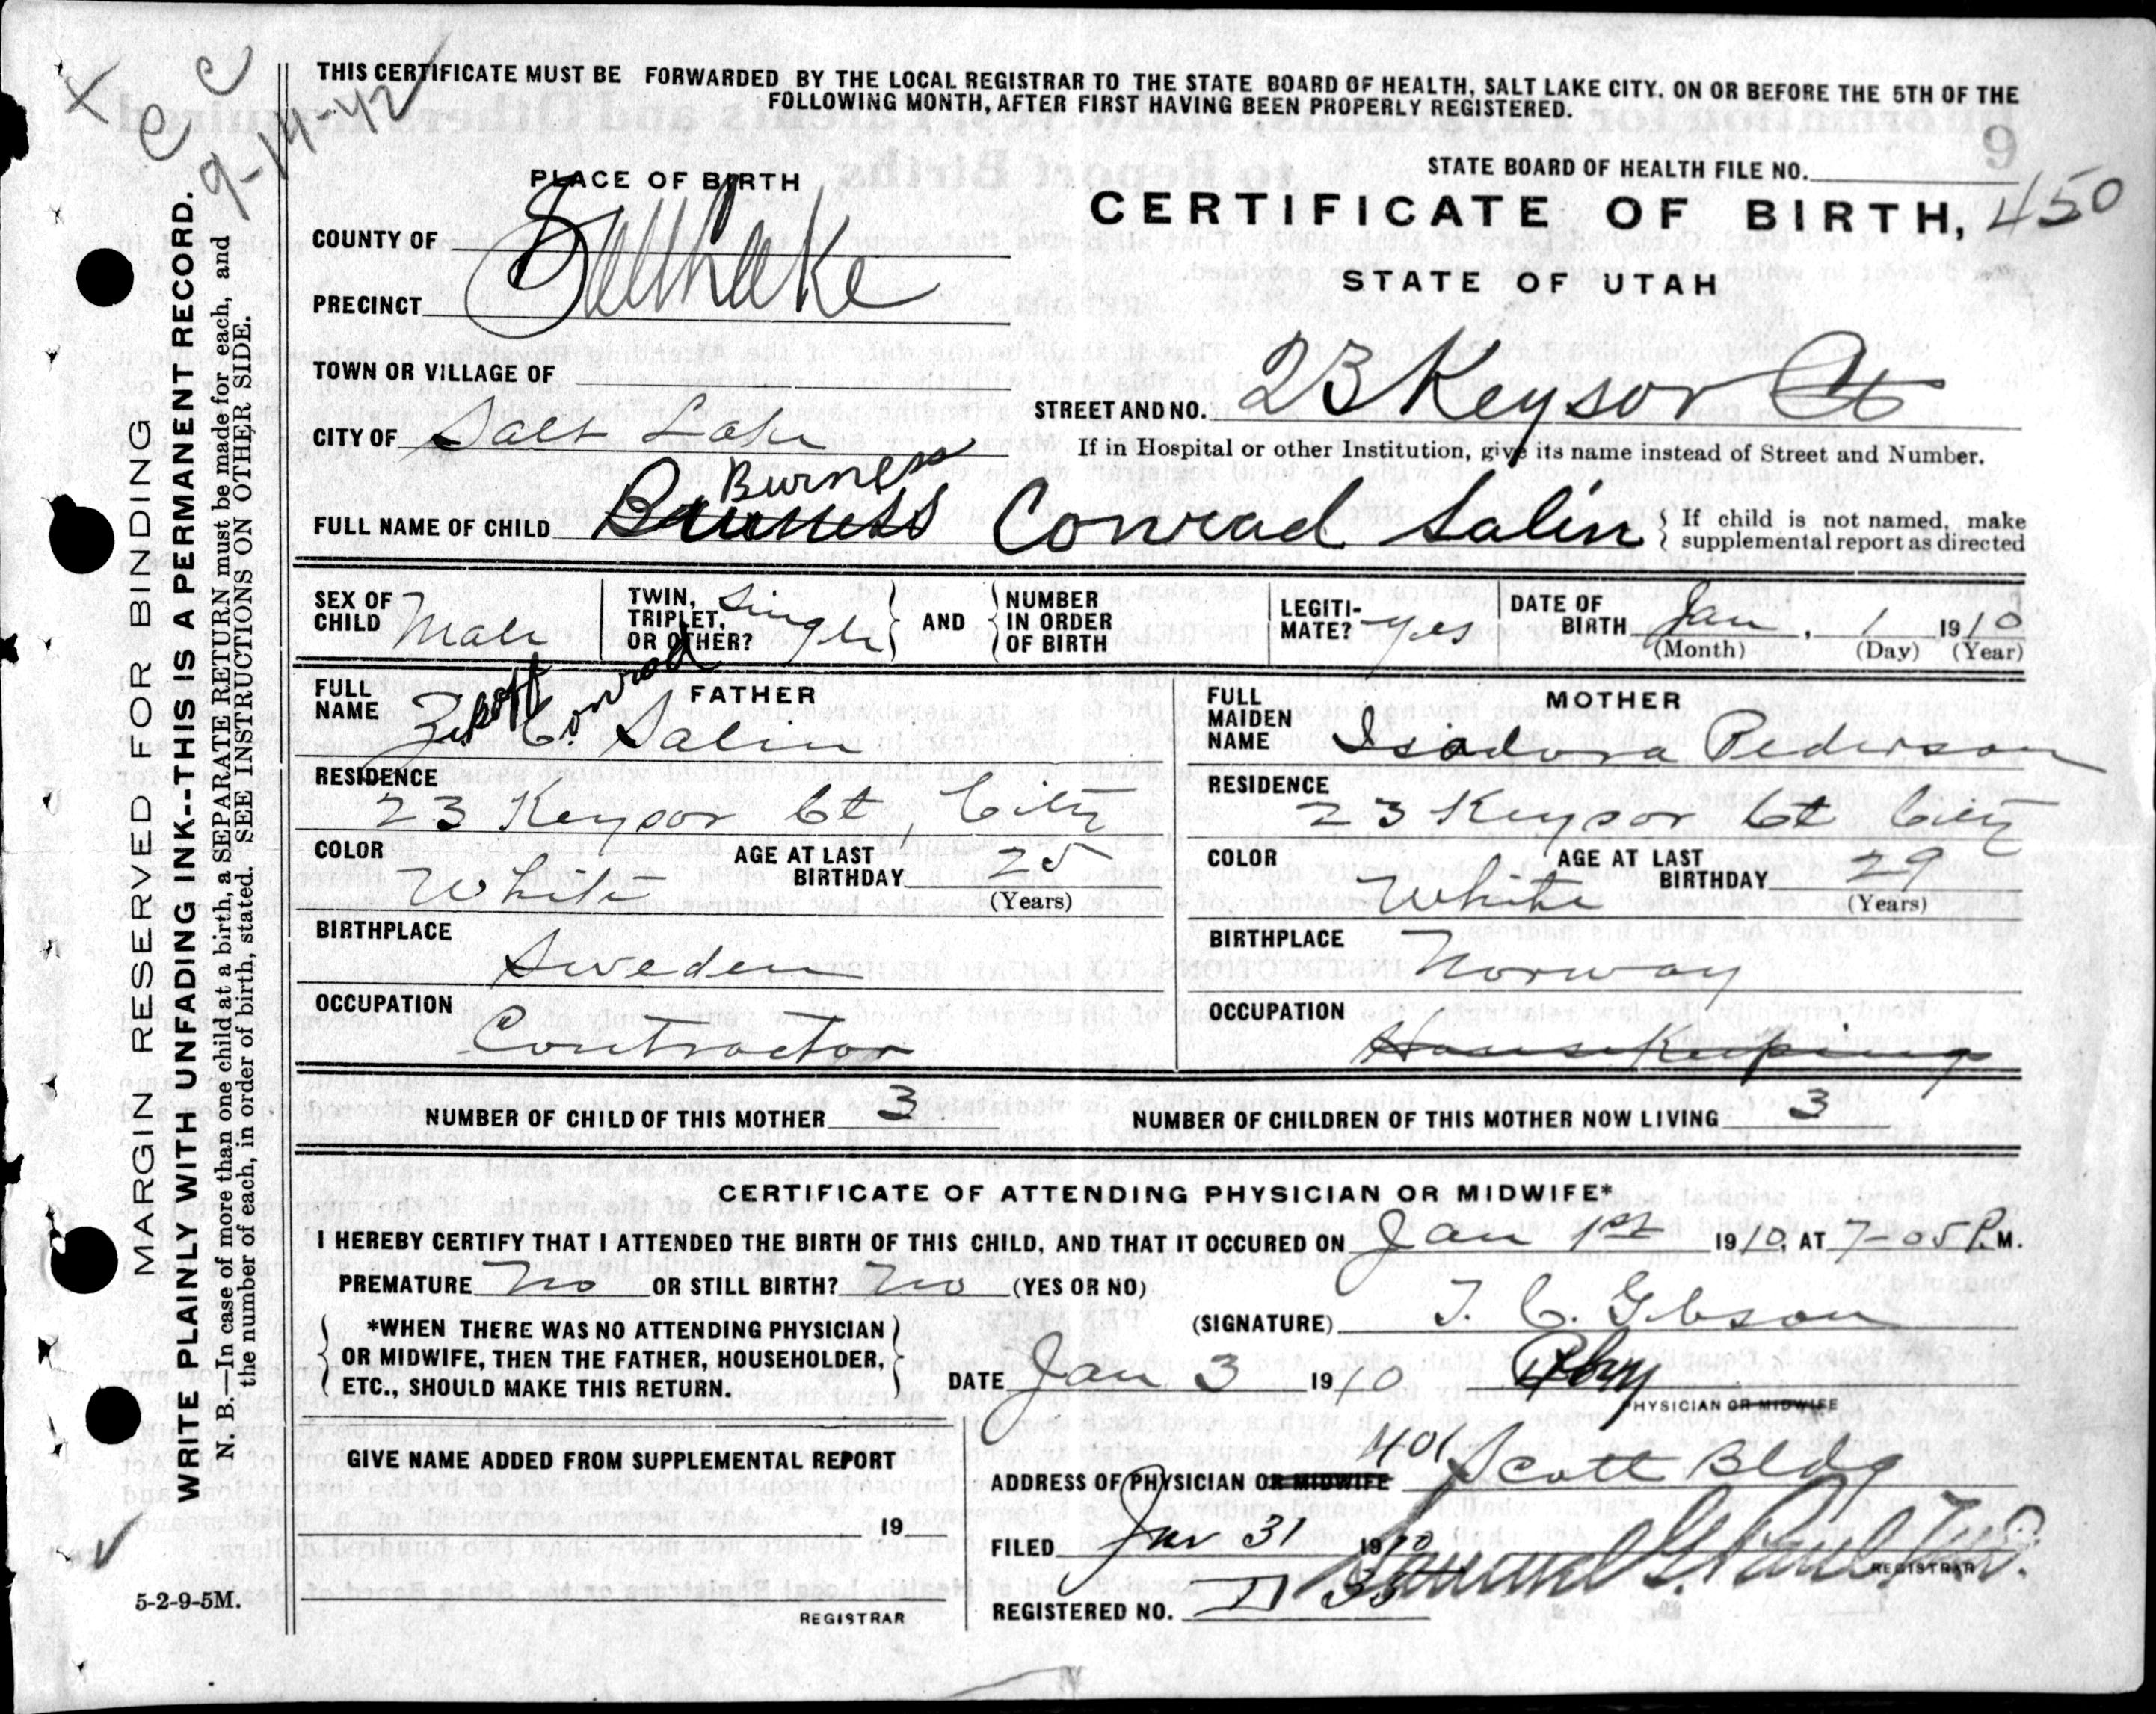 X
C C
9-14-42
THIS CERTIFICATE MUST BE FORWARDED BY THE LOCAL REGISTRAR TO THE STATE BOARD OF HEALTH, SALT LAKE CITY. ON OR BEFORE THE 5TH OF THE
FOLLOWING MONTH, AFTER FIRST HAVING BEEN PROPERLY REGISTERED.
STATE BOARD OF HEALTH FILE NO.
PLACE OF BIRTH
CERTIFICATE OF BIRTH, 450
STATE OF UTAH
COUNTY OF Salt Lake
PRECINCT
TOWN OR VILLAGE OF
STREET AND NO. 23 Keysor Ct
CITY OF Salt Lake
If in Hospital or other Institution, give its name instead of Street and Number.
Burness
FULL NAME OF CHILD Conrad Salin { If child is not named, make
supplemental report as directed
SEX OF CHILD Male
TWIN, TRIPLET, OR OTHER? Single } AND { NUMBER IN ORDER OF BIRTH
LEGITIMATE? yes
DATE OF BIRTH Jan, 1 1910
(Month) (Day) (Year)
FATHER
FULL NAME C. Conrad Salin
RESIDENCE
23 Keysor Ct, City
COLOR White AGE AT LAST BIRTHDAY 25
(Years)
BIRTHPLACE
Sweden
OCCUPATION
Contractor
MOTHER
FULL MAIDEN NAME Isadora Pederson
RESIDENCE
23 Keysor Ct City
COLOR White AGE AT LAST BIRTHDAY 29
(Years)
BIRTHPLACE Norway
OCCUPATION
Housekeeping
NUMBER OF CHILD OF THIS MOTHER 3 NUMBER OF CHILDREN OF THIS MOTHER NOW LIVING 3
CERTIFICATE OF ATTENDING PHYSICIAN OR MIDWIFE*
I HEREBY CERTIFY THAT I ATTENDED THE BIRTH OF THIS CHILD, AND THAT IT OCCURED ON Jan 1st 1910, AT 7-05 P.M.
PREMATURE No OR STILL BIRTH? No (YES OR NO)
(SIGNATURE) T. C. Gibson
{ *WHEN THERE WAS NO ATTENDING PHYSICIAN
OR MIDWIFE, THEN THE FATHER, HOUSEHOLDER,
ETC., SHOULD MAKE THIS RETURN. }
DATE Jan 3 1910
PHYSICIAN OR MIDWIFE
GIVE NAME ADDED FROM SUPPLEMENTAL REPORT
19
REGISTRAR
ADDRESS OF PHYSICIAN OR MIDWIFE 401 Scott Bldg
FILED Jan 31 1910 Samuel G. Paul M.D.
REGISTRAR
REGISTERED NO. 35
MARGIN RESERVED FOR BINDING
WRITE PLAINLY WITH UNFADING INK--THIS IS A PERMANENT RECORD.
N. B.—In case of more than one child at a birth, a SEPARATE RETURN must be made for each, and
the number of each, in order of birth, stated. SEE INSTRUCTIONS ON OTHER SIDE.
5-2-9-5M.